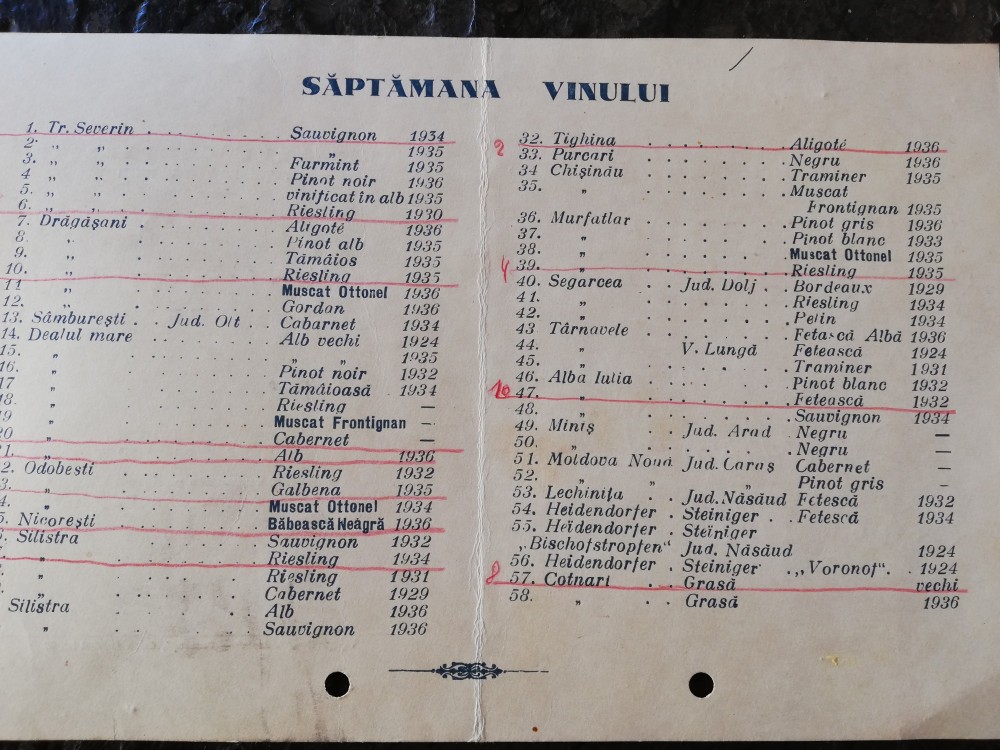 SĂPTĂMANA VINULUI
1. Tr. Severin . . . . . . . Şauvignon 1934
2. „ „ . . . . . . . „ 1935
3. „ „ . . . . . . . Furmint 1935
4. „ „ . . . . . . . Pinot noir 1936
5. „ „ . . . . . . . vinificat în alb 1935
6. „ „ . . . . . . . Riesling 1930
7. Drăgăşani . . . . . . . Aligoté 1936
8. „ . . . . . . . Pinot alb 1935
9. „ . . . . . . . Tămâios 1935
10. „ . . . . . . . Riesling 1935
11 „ . . . . . . . Muscat Ottonel 1936
12. „ . . . . . . . Gordan 1936
13. Sâmbureşti . . Jud. Olt . . Cabarnet 1934
14. Dealul mare . . . . . . Alb vechi 1924
15. „ . . . . . . . „ „ 1935
16. „ . . . . . . . Pinot noir 1932
17 „ . . . . . . . Tămâioasă 1934
18. „ . . . . . . . Riesling —
19 „ . . . . . . . Muscat Frontignan —
20 „ . . . . . . . Cabernet —
21. „ . . . . . . . Alb 1936
2. Odobeşti . . . . . . . Riesling 1932
3. „ . . . . . . . Galbena 1935
4. „ . . . . . . . Muscat Ottonel 1934
5. Nicoreşti . . . . . . . Băbească Neagră 1936
Silistra . . . . . . . Sauvignon 1932
„ . . . . . . . Riesling 1934
„ . . . . . . . Riesling 1931
„ . . . . . . . Cabernet 1929
Silistra . . . . . . . Alb 1936
„ . . . . . . . Sauvignon 1936
2 32. Tighina . . . . . . . Aligoté 1936
33. Purcari . . . . . . . Negru 1936
34 Chişinău . . . . . . . Traminer 1935
35. „ . . . . . . . Muscat
Frontignan 1935
36. Murfatlar . . . . . . . Pinot gris 1936
37. „ . . . . . . . Pinot blanc 1933
38. „ . . . . . . . Muscat Ottonel 1935
4 39. „ . . . . . . . Riesling 1935
40. Segarcea . . Jud. Dolj . . Bordeaux 1929
41. „ . . . . . . . Riesling 1934
42. „ . . . . . . . Pelin 1934
43 Târnavele . . . . . . . Fetască Albă 1936
44. „ V. Lungă Fetească 1924
45. „ . . . . . . . Traminer 1931
46. Alba Iulia . . . . . . . Pinot blanc 1932
10 47. „ . . . . . . . Fetească 1932
48. „ . . . . . . . Sauvignon 1934
49. Miniş . . Jud. Arad Negru —
50. „ . . . . . . . Negru —
51. Moldova Nouă Jud. Caraş Cabernet —
52. „ „ „ „ Pinot gris –
53. Lechinţa . . Jud. Năsăud Fetescă 1932
54. Heidendorfer . Steiniger . . Fetescă 1934
55. Heidendorfer . Steiniger
„Bischofstropfen“ Jud. Năsăud 1924
56. Heidendorfer . Steiniger . „Voronof“. 1924
8 57. Cotnari . . Grasă vechi
58. „ . . Grasă 1936